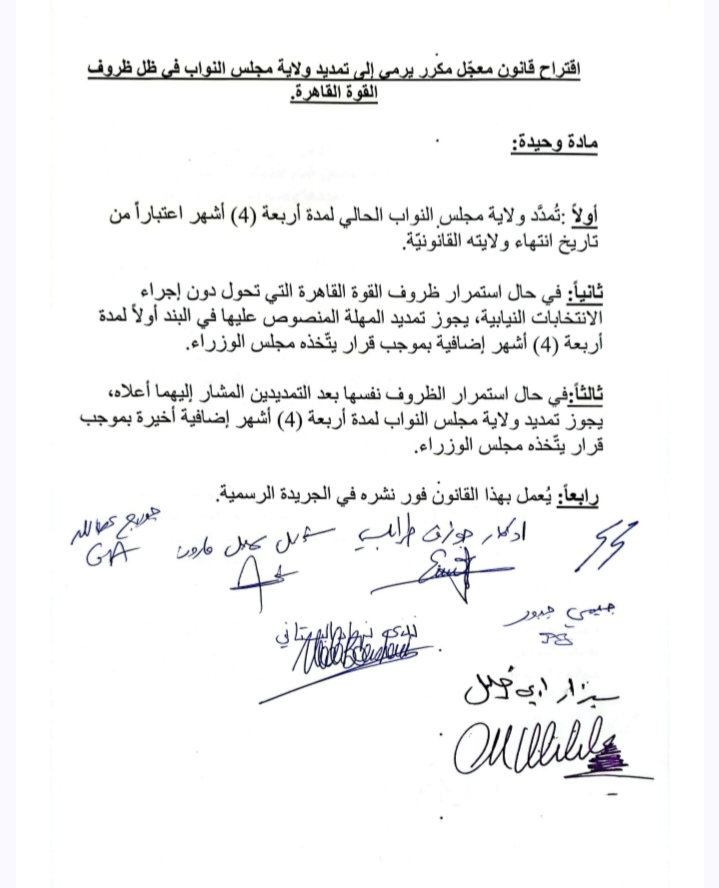 اقتراح قانون معجّل مكرر يرمي إلى تمديد ولاية مجلس النواب في ظل ظروف
القوة القاهرة.
مادة وحيدة:
أولاً :تُمدَّد ولاية مجلس النواب الحالي لمدة أربعة (4) أشهر اعتباراً من
تاريخ انتهاء ولايته القانونيّة.
ثانياً: في حال استمرار ظروف القوة القاهرة التي تحول دون إجراء
الانتخابات النيابية، يجوز تمديد المهلة المنصوص عليها في البند أولاً لمدة
أربعة (4) أشهر إضافية بموجب قرار يتّخذه مجلس الوزراء.
ثالثاً:في حال استمرار الظروف نفسها بعد التمديدين المشار إليهما أعلاه،
يجوز تمديد ولاية مجلس النواب لمدة أربعة (4) أشهر إضافية أخيرة بموجب
قرار يتّخذه مجلس الوزراء.
رابعاً: يُعمل بهذا القانون فور نشره في الجريدة الرسمية.
ادكار جوزف طرابلسي
شربل مارون
جورج عطالله
GA
جيمي جبور
ندى البستاني
سيزار ابي خليل